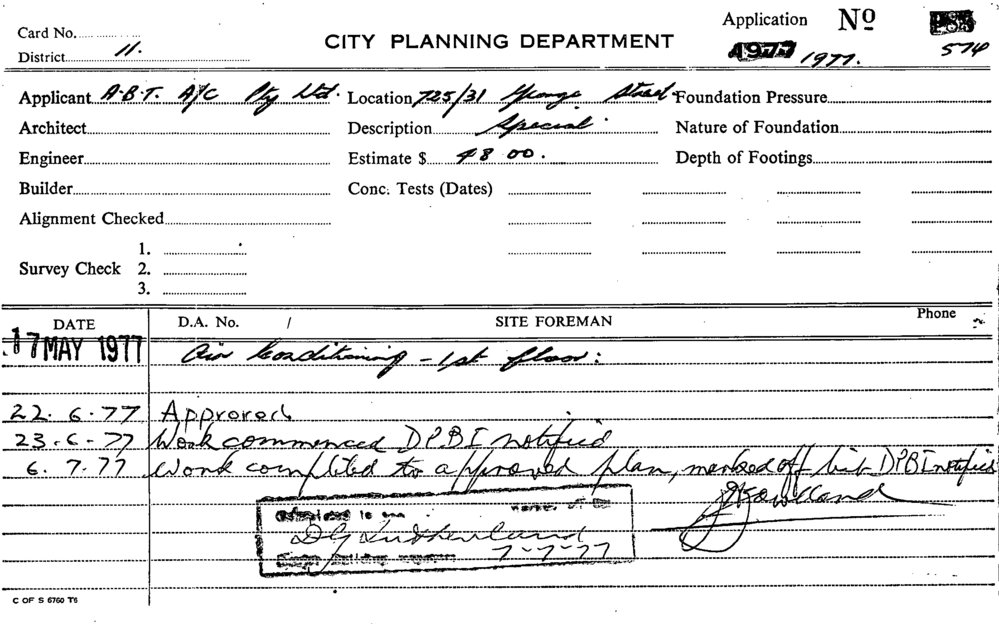 Card No.
CITY PLANNING DEPARTMENT
Application No
District 11.
1977 1977. 574
Applicant A.B.T. A/C Pty Ltd. Location 725/31 George Street Foundation Pressure
Architect Description Special Nature of Foundation
Engineer Estimate $ 48 00. Depth of Footings
Builder Conc. Tests (Dates)
Alignment Checked
1.
Survey Check 2.
3.
DATE D.A. No. / SITE FOREMAN Phone
17 MAY 1977 Air Conditioning - 1st floor:
22.6.77 Approved
23.6.77 Work commenced DPBI notified
6.7.77 Work completed to approved plan, marked off list DPBI notified
7-7-77
C OF S 6760 T6